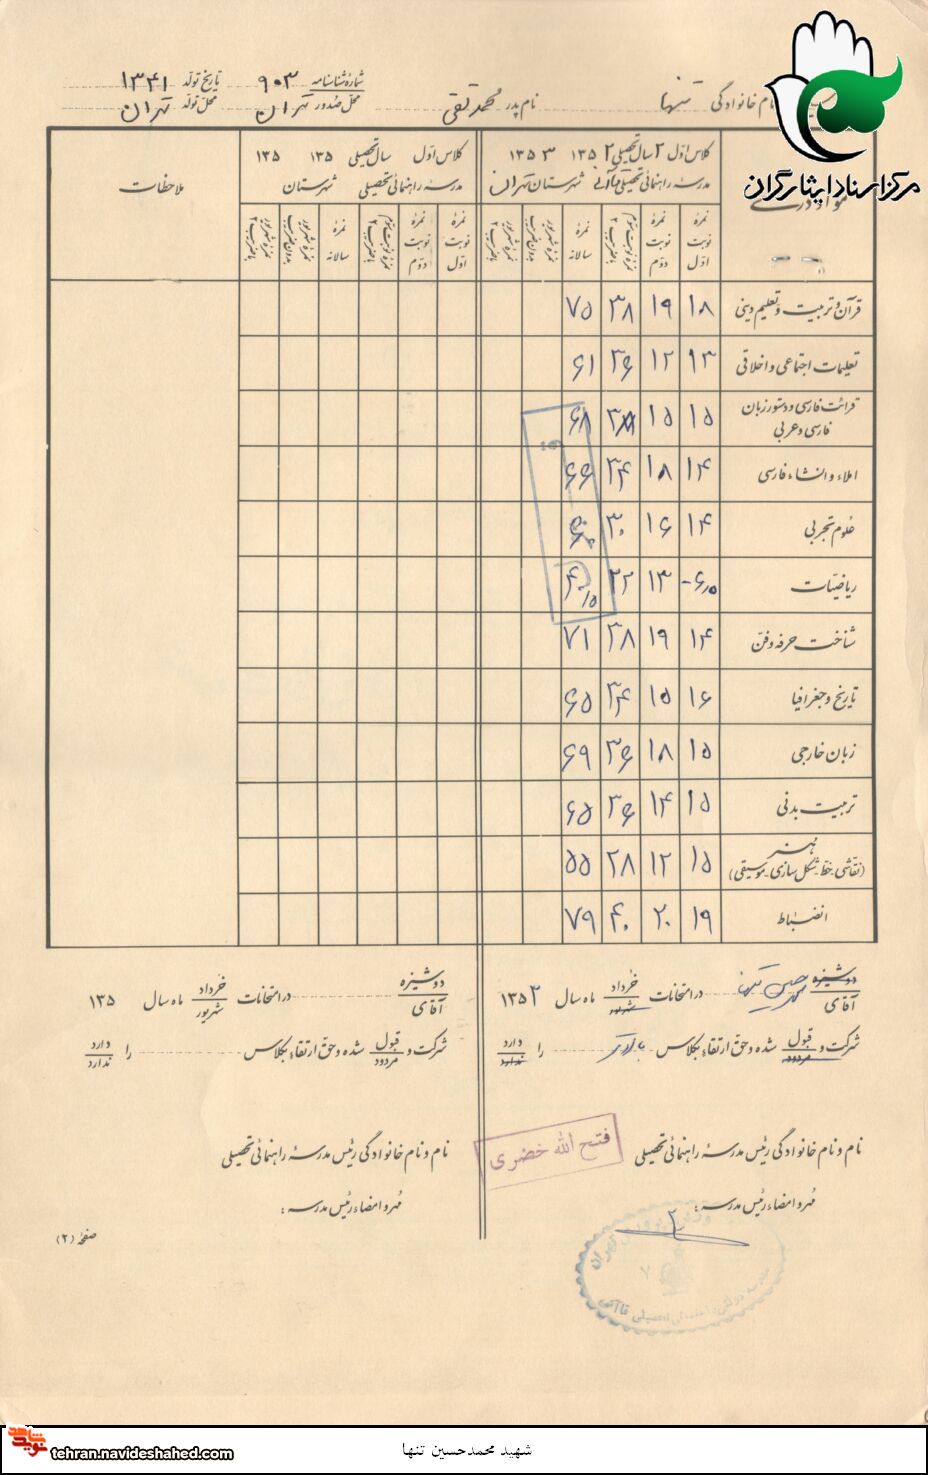 مرکز اسناد ایثارگران
نام خانوادگی تنها نام پدر محمدتقی شمارهٔ شناسنامه ۹۰۳ تاریخ تولد ۱۳۴۱
محل صدور تهران محل تولد تهران
کلاس اول ۲ سال تحصیلی ۲ ۱۳۵ ۳ ۱۳۵
مدرسه راهنمائی تحصیلی قاآنی شهرستان تهران
کلاس اول سال تحصیلی ۱۳۵ ۱۳۵
مدرسه راهنمائی تحصیلی شهرستان
ملاحظات
نمرهٔ نوبت اول نمرهٔ نوبت دوم نمرهٔ نوبت سوم با ضریب ۲ نمرهٔ سالانه نمرهٔ شهریور بدون ضریب نمرهٔ شهریور با ضریب ۲
نمرهٔ نوبت اول نمرهٔ نوبت دوم نمرهٔ نوبت سوم با ضریب ۲ نمرهٔ سالانه نمرهٔ شهریور بدون ضریب نمرهٔ شهریور با ضریب ۲
قرآن و تربیت و تعلیم دینی ۱۸ ۱۹ ۳۸ ۷۵
تعلیمات اجتماعی و اخلاقی ۱۳ ۱۲ ۳۶ ۶۱
قرائت فارسی و دستور زبان فارسی و عربی ۱۵ ۱۵ ۳۸ ۶۸
املاء و انشاء فارسی ۱۴ ۱۸ ۳۴ ۶۶
علوم تجربی ۱۴ ۱۶ ۳۰ ۶۰
ریاضیات ۶٫۵ ۱۳ ۲۲ ۴۱٫۵
شناخت حرفه و فن ۱۴ ۱۹ ۳۸ ۷۱
تاریخ و جغرافیا ۱۶ ۱۵ ۳۴ ۶۵
زبان خارجی ۱۵ ۱۸ ۳۶ ۶۹
تربیت بدنی ۱۵ ۱۴ ۳۶ ۶۵
هنر (نقاشی - خط - شکل سازی - موسیقی) ۱۵ ۱۲ ۲۸ ۵۵
انضباط ۱۹ ۲۰ ۴۰ ۷۹
دوشیزه آقای محمدحسین تنها در امتحانات خرداد شهریور ماه سال ۱۳۵۳
شرکت و قبول مردود شده و حق ارتقاء بکلاس بالاتر را دارد ندارد
دوشیزه آقای در امتحانات خرداد شهریور ماه سال ۱۳۵
شرکت و قبول مردود شده و حق ارتقاء بکلاس را دارد ندارد
نام و نام خانوادگی رئیس مدرسه راهنمائی تحصیلی فتح الله خضری
مهر و امضاء رئیس مدرسه:
نام و نام خانوادگی رئیس مدرسه راهنمائی تحصیلی
مهر و امضاء رئیس مدرسه:
صفحهٔ (۲)
شهید محمدحسین تنها
نوید شاهد
tehran.navideshahed.com